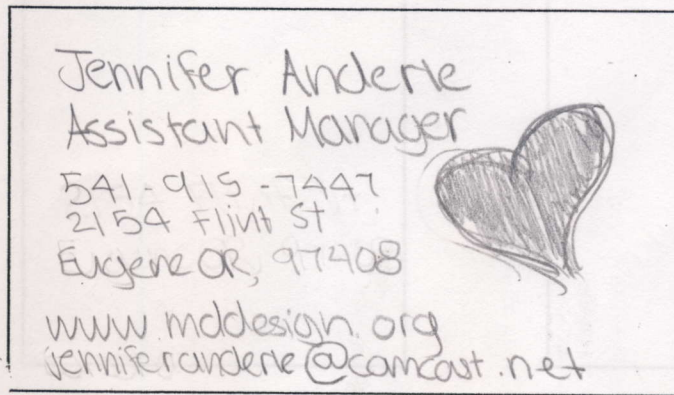 Jennifer Anderle
Assistant Manager
541-915-7447
2154 Flint St
Eugene OR, 97408
www.mddesign.org
jenniferanderle@comcast.net